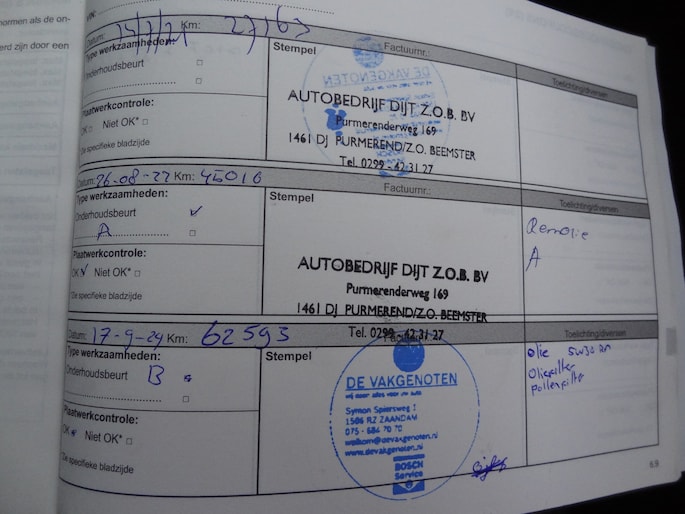 normen als de on-
erd zijn door een
VIN:
Datum: 14/7/21 Km: 27163
Type werkzaamheden:
Onderhoudsbeurt
Plaatwerkcontrole:
OK Niet OK*
*De specifieke bladzijde
Stempel
Factuurnr.:
DE VAKGENOTEN
AUTOBEDRIJF DIJT Z.O.B. BV
Purmerenderweg 169
1461 DJ PURMEREND/Z.O. BEEMSTER
Tel. 0299 - 42 31 27
Toelichting/diversen
Datum: 26-08-22 Km: 45016
Type werkzaamheden:
Onderhoudsbeurt
A
Plaatwerkcontrole:
OK Niet OK*
*De specifieke bladzijde
Stempel
Factuurnr.:
AUTOBEDRIJF DIJT Z.O.B. BV
Purmerenderweg 169
1461 DJ PURMEREND/Z.O. BEEMSTER
Tel. 0299 - 42 31 27
Toelichting/diversen
Remolie
A
Datum: 17-9-24 Km: 62593
Type werkzaamheden:
Onderhoudsbeurt B
Plaatwerkcontrole:
OK Niet OK*
*De specifieke bladzijde
Stempel
DE VAKGENOTEN
wij doen alles voor uw auto
Symon Spiersweg 1
1506 RZ ZAANDAM
075 - 684 70 70
welkom@devakgenoten.nl
www.devakgenoten.nl
BOSCH
Service
Toelichting/diversen
olie 5w30
Oliefilter
pollenfilter
6.9